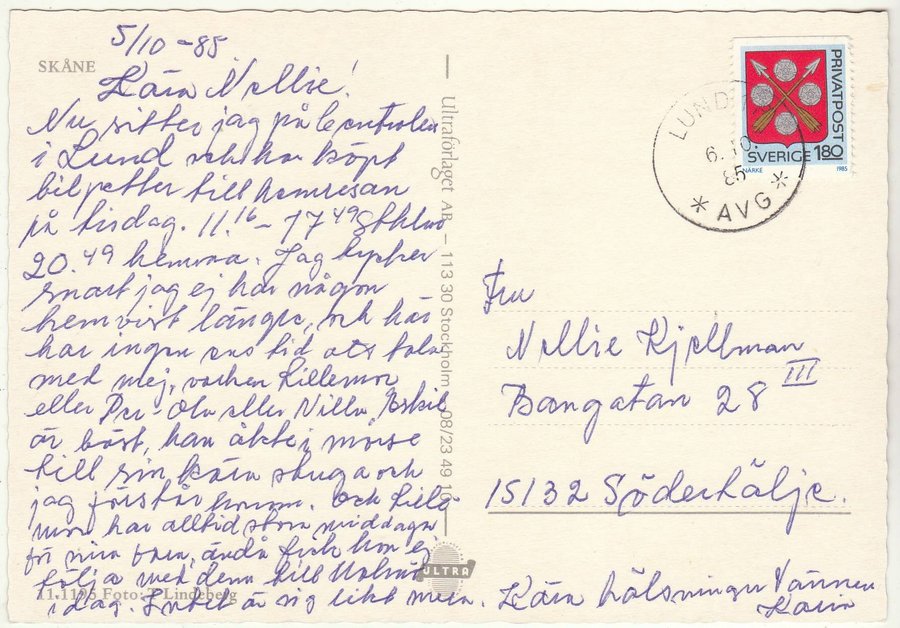 5/10 -85
SKÅNE
Kära Nellie!
Nu sitter jag på Centralen
i Lund och har köpt
biljetter till hemresan
på tisdag. 11.16 - 17.49 Sthlm
20.49 hemma. Jag tycker
snart jag ej har någon
hemvist längre, och här
har ingen ens tid att tala
med mej, varken Lillemor
eller Per-Ola eller Nilla. Eskil
är bäst, han åkte i morse
till sin kära stuga och
jag förstår honom. Och Lille
mor har alltid stora middagar
för sina barn, ändå fick hon ej
följa med dem till Malmö
i dag. Intet är sig likt mera. Kära hälsningar Vännen
Karin
11.1195 Foto: T Lindeberg
Ultraförlaget AB - 113 30 Stockholm 08/23 49 10
ULTRA
LUND
6. 10.
85
* AVG *
PRIVATPOST
SVERIGE 180
NÄRKE 1985
Fru
Nellie Kjellman
Bangatan 28 III
15132 Södertälje.